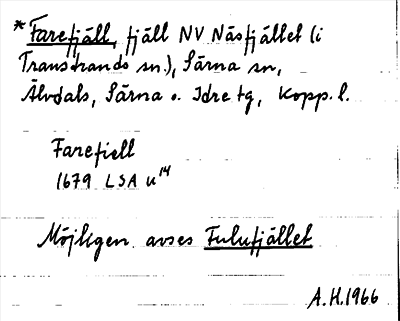 * Farefjäll, fjäll NV Näsfjället (i
Transtrands sn.), Särna sn,
Älvdals, Särna o. Idre tg, Kopp. l.
Farefiell
1679 LSA u¹⁴
Möjligen avses Fulufjället
A.H. 1966